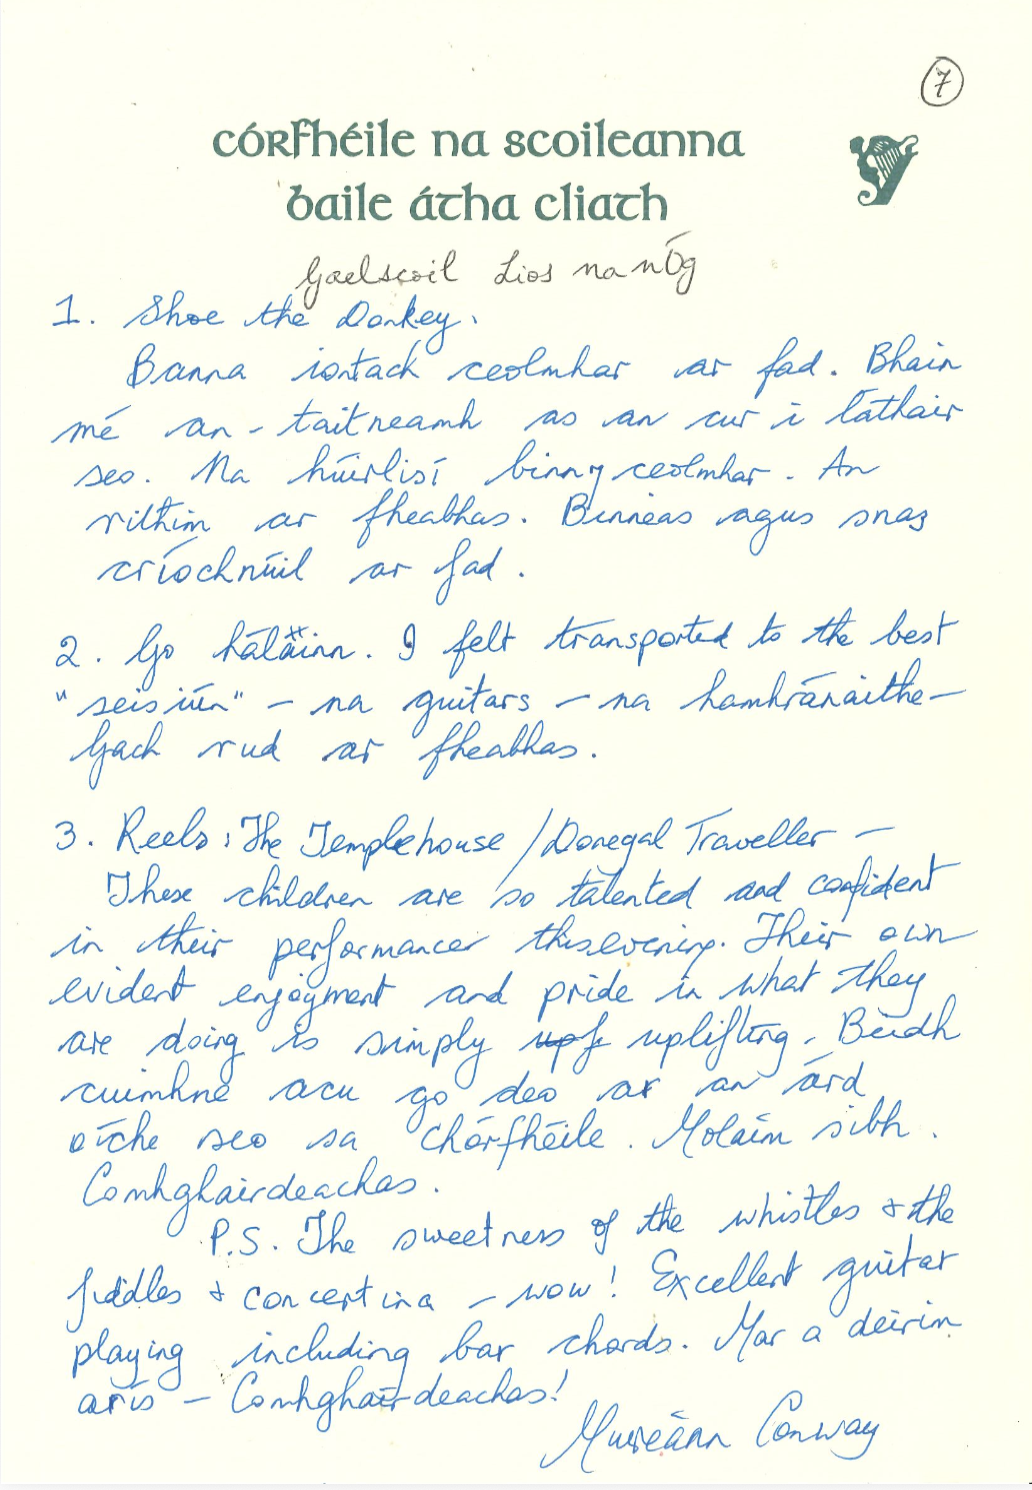 7
Córfhéile na Scoileanna
Baile Átha Cliath
Gaelscoil Lios na nÓg
1. Shoe the Donkey.
Banna iontach ceolmhar ar fad. Bhain
mé an-taitneamh as an cur i láthair
seo. Na húirlisí binn ⁊ ceolmhar. An
rithim ar fheabhas. Binneas agus snas
críochnúil ar fad.
2. Go háláinn. I felt transported to the best
"seisiún" – na guitars – na hamhránaithe –
Gach rud ar fheabhas.
3. Reels: The Templehouse / Donegal Traveller –
These children are so talented and confident
in their performance this evening. Their own
evident enjoyment and pride in what they
are doing is simply uplifting. Beidh
cuimhne acu go deo ar an árd
oíche seo sa Chórfhéile. Molaim sibh.
Comhghairdeachas.
P.S. The sweetness of the whistles & the
fiddles & concertina – wow! Excellent guitar
playing including bar chords. Mar a deirim
arís – Comhghairdeachas!
Muireánn Conway